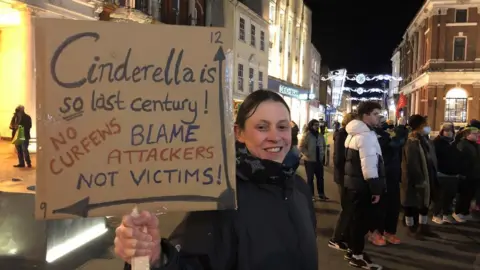 12
Cinderella is
so last century!
NO
CURFEWS
BLAME
ATTACKERS
NOT VICTIMS!
9